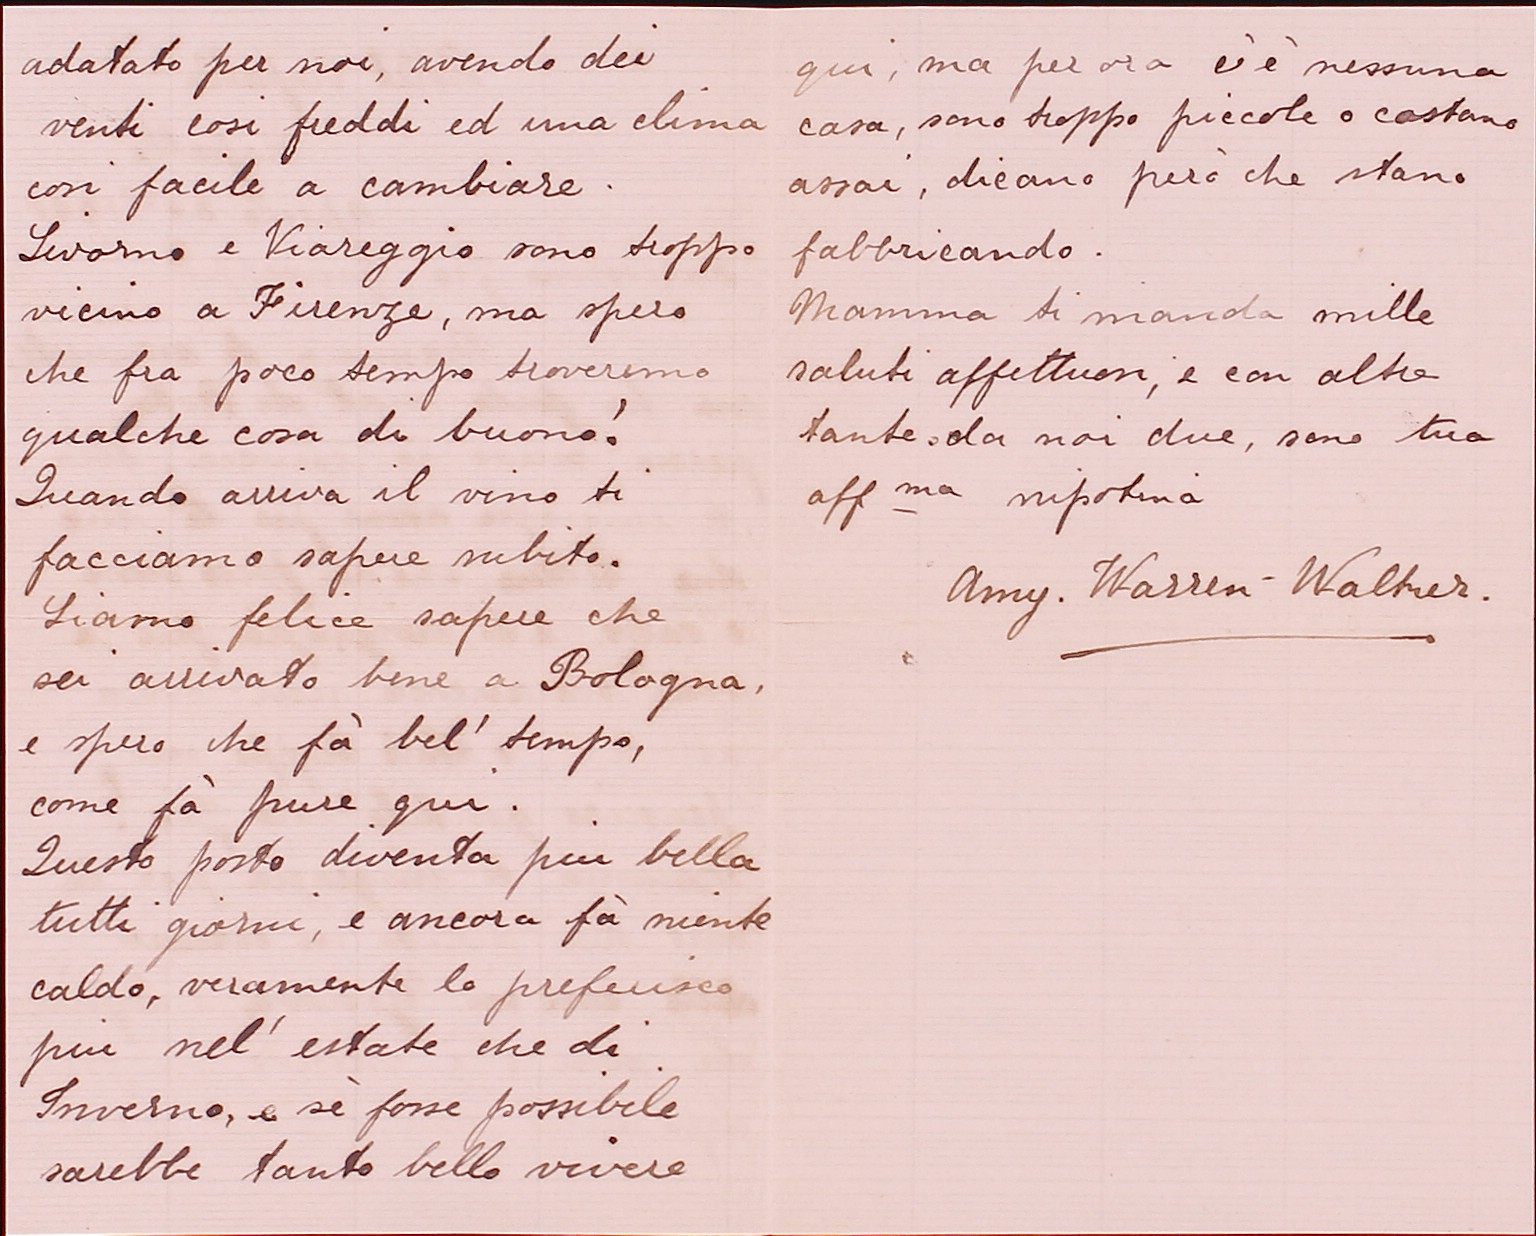 adatato per noi, avendo dei
venti cosi freddi ed una clima
cosi facile a cambiare.
Livorno e Viareggio sono troppo
vicino a Firenze, ma spero
che fra poco tempo troveremo
qualche cosa di buono!
Quando arriva il vino ti
facciamo sapere subito.
Siamo felice sapere che
sei arrivato bene a Bologna,
e spero che fà bel' tempo,
come fà pure qui.
Questo posto diventa piu bella
tutti giorni, e ancora fà niente
caldo, veramente lo preferisco
piu nel' estate che di
Inverno, e sè fosse possibile
sarebbe tanto bello vivere
qui, ma per ora c'è nessuna
casa, sono troppo piccole o costano
assai, dicano però che stano
fabbricando.
Mamma ti manda mille
saluti affettuosi, e con altre
tante da noi due, sono tua
aff ma nipotina
Amy. Warren-Walker.